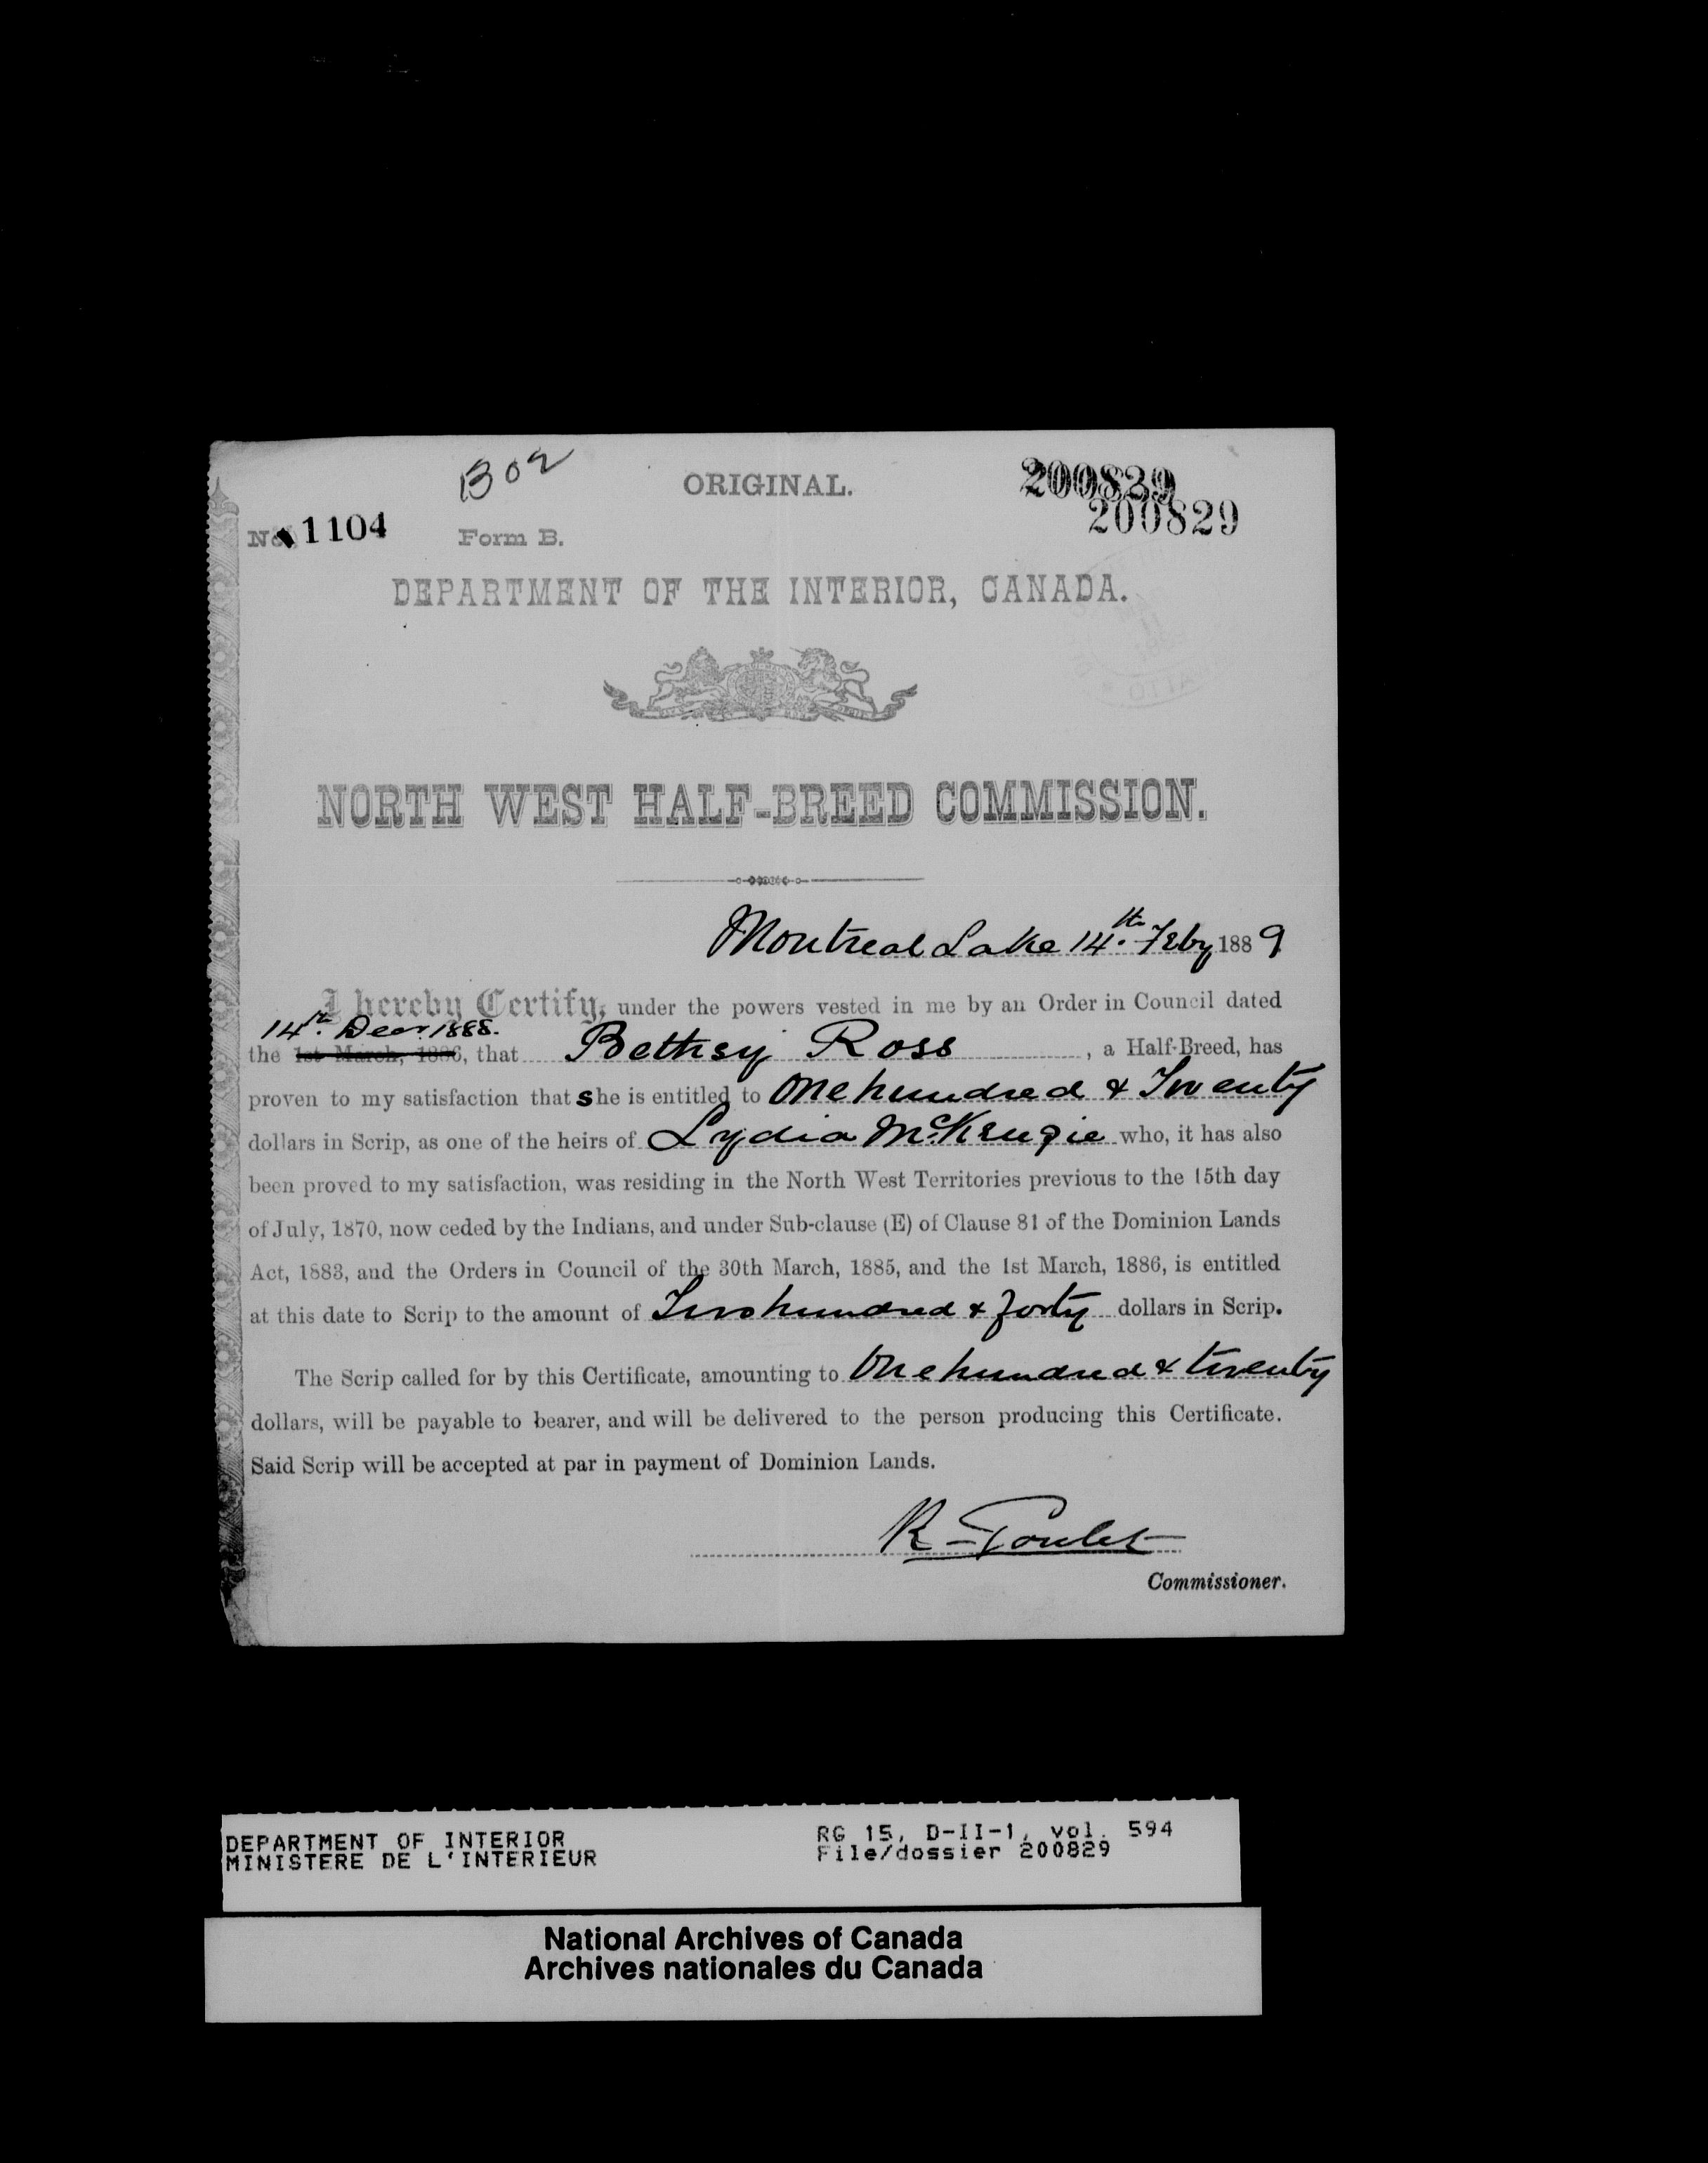 1302
ORIGINAL.
200829
200829
No. 1104
Form B.
DEPARTMENT OF THE INTERIOR, CANADA.
NORTH WEST HALF-BREED COMMISSION.
Montreal Lake 14th. Feby 1889
I hereby Certify, under the powers vested in me by an Order in Council dated
14th. Decr. 1888.
the 1st March, 1886, that Bethsy Ross, a Half-Breed, has
proven to my satisfaction that she is entitled to One hundred & Twenty
dollars in Scrip, as one of the heirs of Lydia McKenzie who, it has also
been proved to my satisfaction, was residing in the North West Territories previous to the 15th day
of July, 1870, now ceded by the Indians, and under Sub-clause (E) of Clause 81 of the Dominion Lands
Act, 1883, and the Orders in Council of the 30th March, 1885, and the 1st March, 1886, is entitled
at this date to Scrip to the amount of Two hundred & forty dollars in Scrip.
The Scrip called for by this Certificate, amounting to One hundred & twenty
dollars, will be payable to bearer, and will be delivered to the person producing this Certificate.
Said Scrip will be accepted at par in payment of Dominion Lands.
R Goulet
Commissioner.
DEPARTMENT OF INTERIOR
MINISTERE DE L'INTERIEUR
RG 15, D-II-1, vol. 594
File/dossier 200829
National Archives of Canada
Archives nationales du Canada